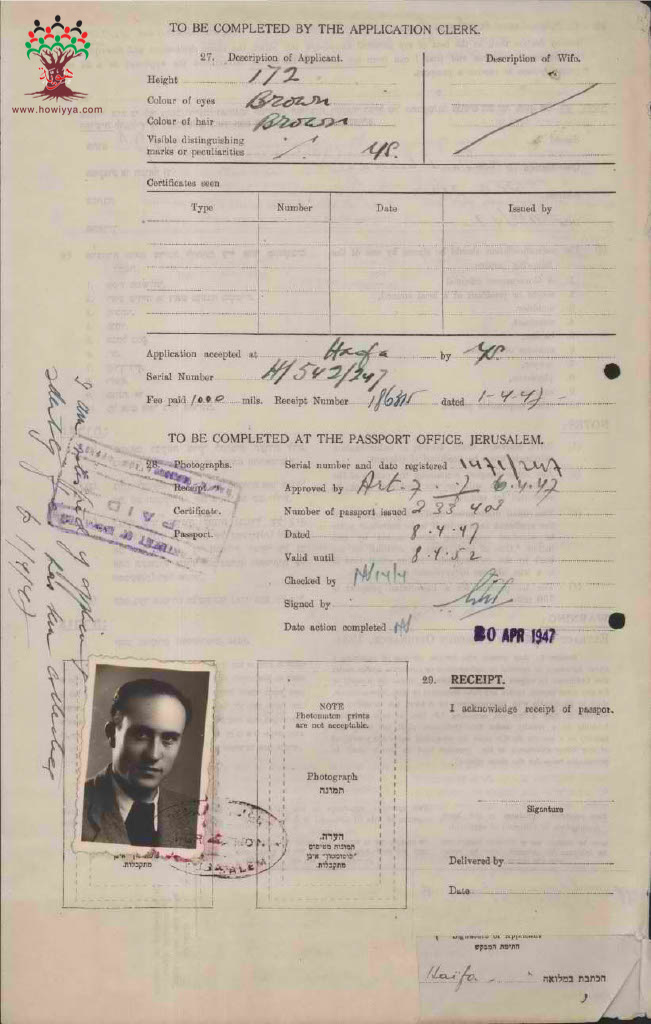 www.howiyya.com
TO BE COMPLETED BY THE APPLICATION CLERK.
27. Description of Applicant.
Description of Wife.
Height 172
Colour of eyes Brown
Colour of hair Brown
Visible distinguishing
marks or peculiarities
Certificates seen
Type Number Date Issued by
Application accepted at Haifa by
Serial Number H/542/247
Fee paid 1000 mils. Receipt Number dated 1-4-47
TO BE COMPLETED AT THE PASSPORT OFFICE, JERUSALEM.
28. Photographs. Serial number and date registered 1471/247
Receipt. Approved by Art. 7 6.4.47
Certificate. Number of passport issued 233 403
Passport. Dated 8.4.47
Valid until 8.4.52
Checked by
Signed by
Date action completed
PAID
20 APR 1947
I am satisfied
1/4/47
NOTE
Photomaton prints
are not acceptable.
Photograph
תמונה
הערה.
תמונות מטיפוס
"פוטומטון" אינן
מתקבלות.
מתקבלות.
29. RECEIPT.
I acknowledge receipt of passport.
Signature
Delivered by
Date
Signature of Applicant
חתימת המבקש
Haifa הכתבת במלואה